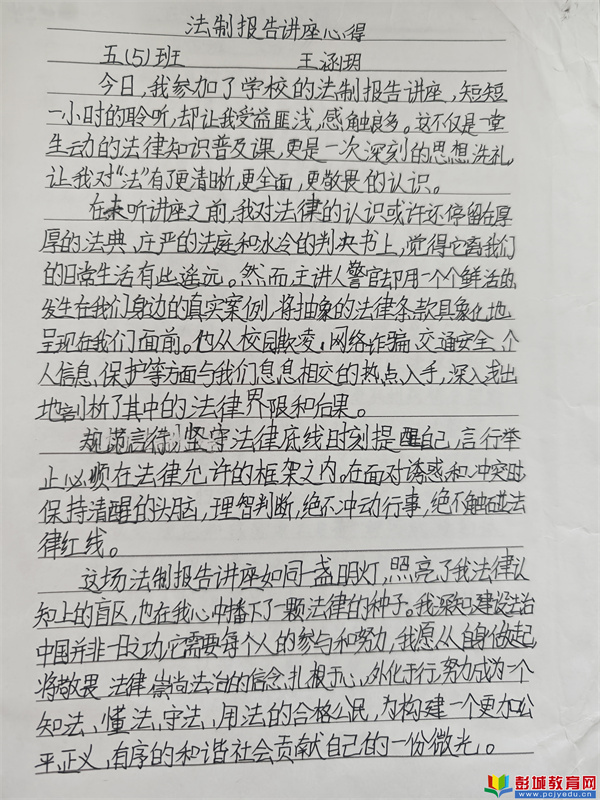 法制报告讲座心得
五(5)班 王涵玥
今日,我参加了学校的法制报告讲座,短短
一小时的聆听,却让我受益匪浅,感触良多。这不仅是一堂
生动的法律知识普及课,更是一次深刻的思想洗礼,
让我对“法”有了更清晰,更全面,更敬畏的认识。
在听讲座之前,我对法律的认识或许还停留在厚
厚的法典、庄严的法庭和冰冷的判决书上,觉得它离我们
的日常生活有些遥远。然而,主讲人警官却用一个个鲜活的
发生在我们身边的真实案例,将抽象的法律条款具象化地
呈现在我们面前。他从校园欺凌,网络诈骗,交通安全、个
人信息、保护等方面与我们息息相交的热点入手,深入浅出
地剖析了其中的法律界限和后果。
规范言行,坚守法律底线时刻提醒自己,言行举
止必须在法律允许的框架之内。在面对诱惑和冲突时
保持清醒的头脑,理智判断,绝不冲动行事,绝不触碰法
律红线。
这场法制报告讲座如同一盏明灯,照亮了我法律认
知上的盲区,也在我心中播下了一颗法律的种子。我深知建设法治
中国并非一日之功,它需要每个人的参与和努力,我愿从自身做起
将敬畏法律崇尚法治的信念,扎根于心,外化于行,努力成为一个
知法、懂法,守法,用法的合格公民,为构建一个更加公
平正义,有序的和谐社会贡献自己的一份微光。
彭城教育网
www.pcjyedu.cn